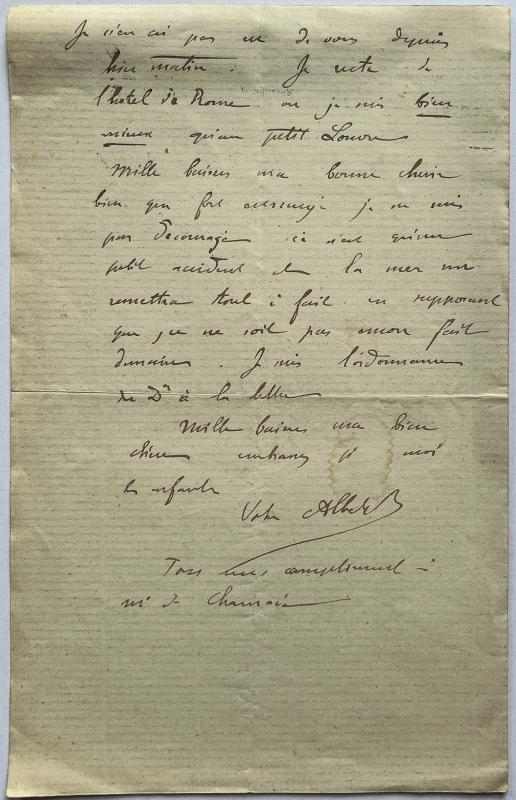 Je n'en ai pas eu de vous depuis
hier matin. Je reste de
l'hotel de Rome où je suis bien
mieux qu'au petit Louvre
Mille baisers ma bonne cherie
bien que fort ennuyé je ne suis
pas découragé ce n'est qu'un
petit accident et la mer me
remettra tout à fait en supposant
que je ne soit pas encore fait
demain. Je suis l'ordonnance
du Dr à la lettre
Mille baisers ma bien
chère embrassez moi
les enfants
Votre Albert
Tous mes compliments à